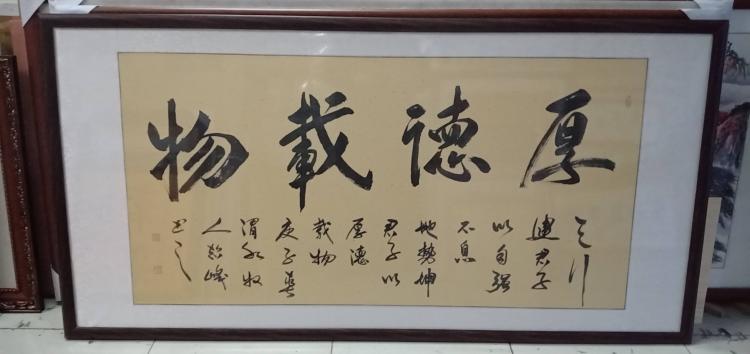 厚德載物
天行
健君子
以自強
不息
地勢坤
君子以
厚德
載物
庚子
渭水牧
人
書